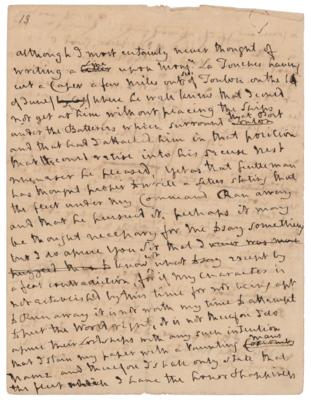 13
although I most certainly never thought of
writing a line upon Monsr. La Touches having
cut a Caper a few miles outside of Toulon on the 14
of June where he well knew that I could
not get at him without placing the Ships
under the Batteries which surround that Port
and that had I attack'd him in that position
that he could retire into his secure nest
whenever he pleased, Yet as that Gentleman
has thought proper to write a letter stating that
the fleet under my Command Ran away
and that he pursued it, perhaps it may
be thought necessary for me to say something
but I do assure you Sir that I
know not what to say except by
a flat contradiction, for if my Character is
not establish'd by this time for not being apt
to Run away it is not worth my time to attempt
to put the World right, it is not therefore I do
assure their Lordships with any such intention
that I stain my paper with a Vaunting mans
Name and therefore I shall only state that
the fleet I have the honor & happiness